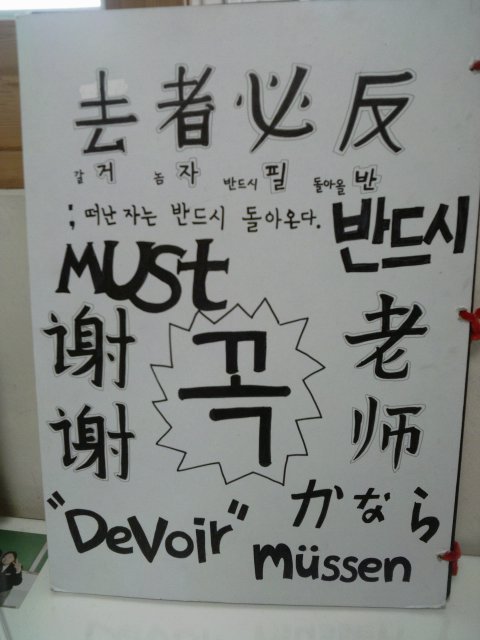 去者必反
갈 거 놈 자 반드시 필 돌아올 반
; 떠난 자는 반드시 돌아온다.
반드시
MUSt
谢谢
꼭
老师
"DeVoir"
かなら
müssen